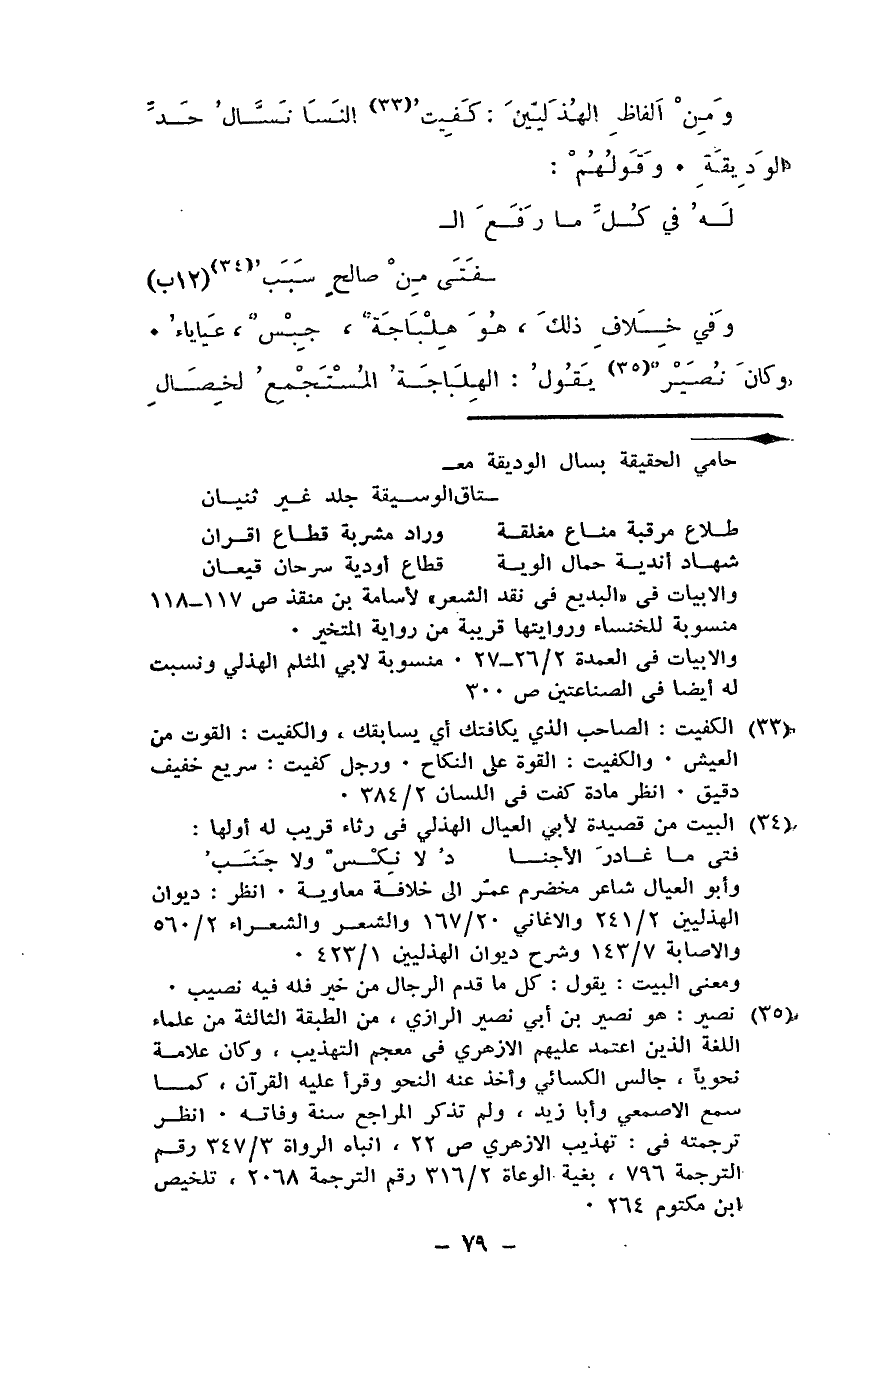 وَمِنْ أَلفاظِ الهُذَلِيّينَ : كَفِيتُ(٣٣) النَسَا نَسَّالُ حَدَّ
الوَدِيقَةِ ٠ وَقَولُهُمْ :
لَهُ في كُلِّ ما رَفَعَ الـ
ـفَتَى مِنْ صالحٍ سَبَبُ(٣٤)(١٢ب)
وَفي خِلافِ ذلكَ ، هُوَ هِلْبَاجَةٌ ، جِبْسٌ ، عَيَاياءُ ٠
وكانَ نُصَيْرٌ(٣٥) يَقُولُ : الهِلبَاجَةُ المُسْتَجْمِعُ لخِصَالِ
حامي الحقيقة بسال الوديقة معـ
ـتاق الوسيقة جلد غير ثنيان
طلاع مرقبة مناع مغلقة وراد مشربة قطاع اقران
شهاد أندية حمال الوية قطاع أودية سرحان قيعان
والابيات فى «البديع فى نقد الشعر» لأسامة بن منقذ ص ١١٧ــ١١٨
منسوبة للخنساء وروايتها قريبة من رواية المتخير ٠
والابيات فى العمدة ٢٦/٢ــ٢٧ ٠ منسوبة لابي المثلم الهذلي ونسبت
له أيضا فى الصناعتين ص ٣٠٠
(٣٣) الكفيت : الصاحب الذي يكافتك أي يسابقك ، والكفيت : القوت من
العيش ٠ والكفيت : القوة على النكاح ٠ ورجل كفيت : سريع خفيف
دقيق ٠ انظر مادة كفت فى اللسان ٣٨٤/٢ ٠
(٣٤) البيت من قصيدة لأبي العيال الهذلي فى رثاء قريب له أولها :
فتى ما غادرَ الأجنا دُ لا نِكْسٌ ولا جَنَبُ
وأبو العيال شاعر مخضرم عمّر الى خلافة معاوية ٠ انظر : ديوان
الهذليين ٢٤١/٢ والاغاني ١٦٧/٢٠ والشعر والشعراء ٥٦٠/٢
والاصابة ١٤٣/٧ وشرح ديوان الهذليين ٤٢٣/١ ٠
ومعنى البيت : يقول : كل ما قدم الرجال من خير فله فيه نصيب ٠
(٣٥) نصير : هو نصير بن أبي نصير الرازي ، من الطبقة الثالثة من علماء
اللغة الذين اعتمد عليهم الازهري فى معجم التهذيب ، وكان علامة
نحوياً ، جالس الكسائي وأخذ عنه النحو وقرأ عليه القرآن ، كما
سمع الاصمعي وأبا زيد ، ولم تذكر المراجع سنة وفاته ٠ انظر
ترجمته فى : تهذيب الازهري ص ٢٢ ، انباه الرواة ٣٤٧/٣ رقم
الترجمة ٧٩٦ ، بغية الوعاة ٣١٦/٢ رقم الترجمة ٢٠٦٨ ، تلخيص
ابن مكتوم ٢٦٤ ٠
– ٧٩ –